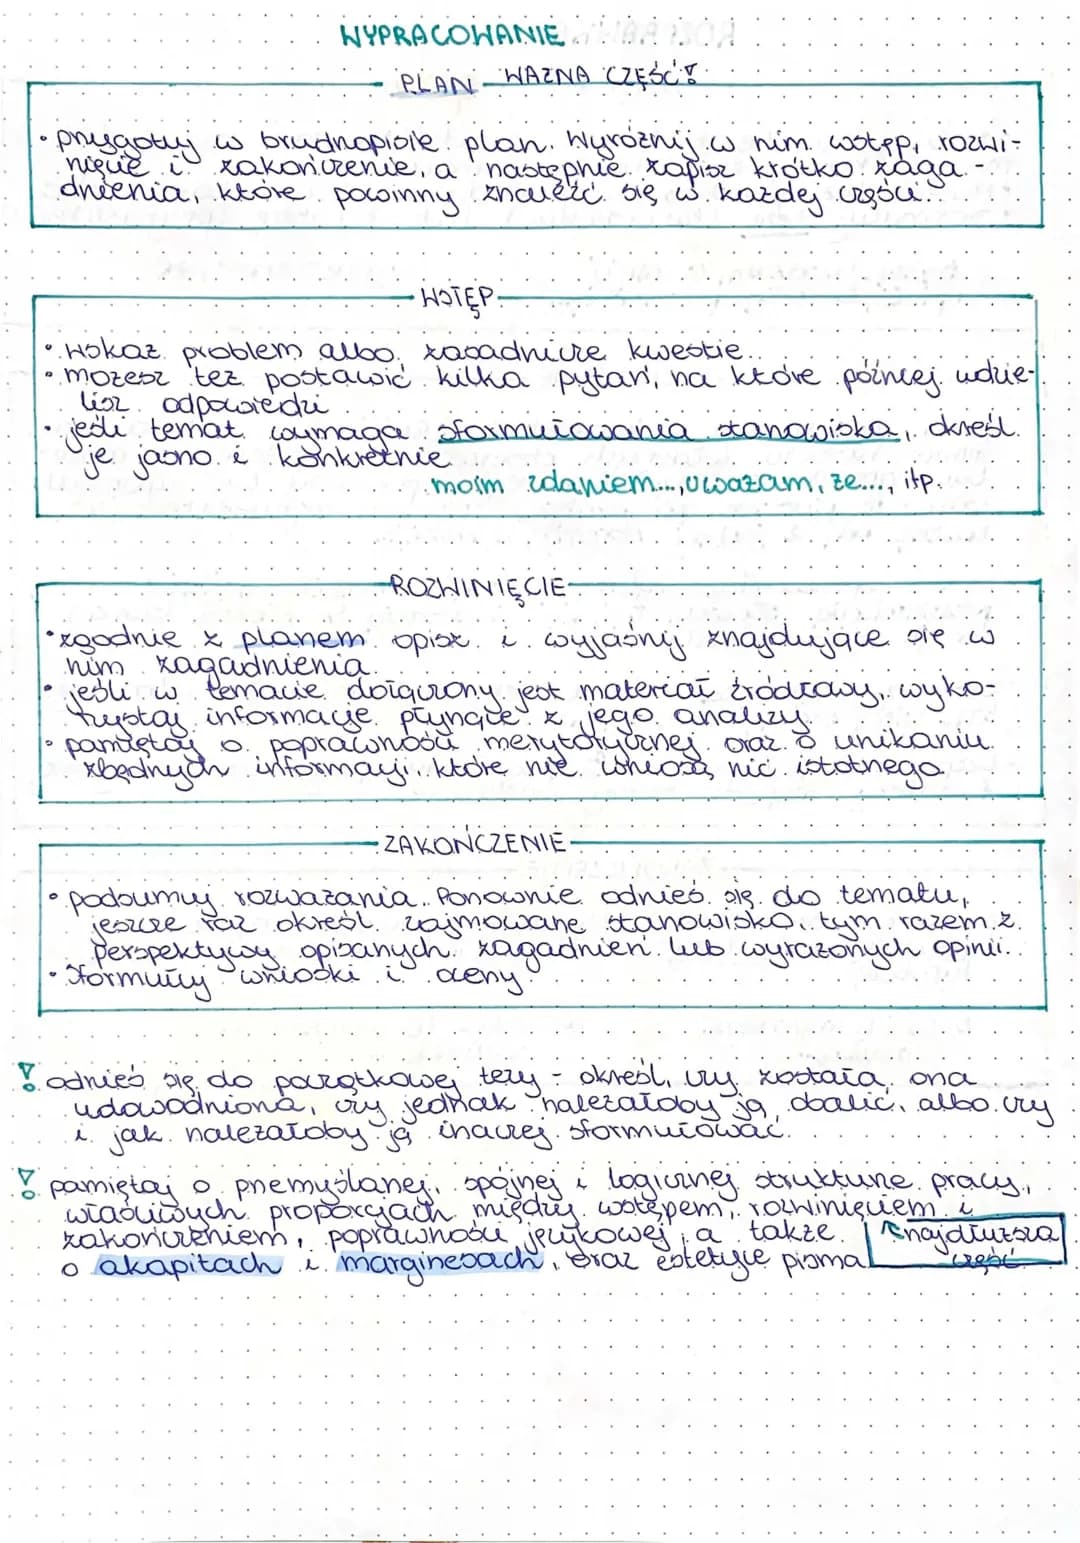 WYPRACOWANIE
PLAN - WAŻNA CZĘŚĆ!
• przygotuj w brudnopisie plan. Wyróżnij w nim wstęp, rozwi-
nięcie i zakończenie, a następnie zapisz krótko zaga-
dnienia, które powinny znaleźć się w każdej części.
WSTĘP
• Wskaż problem albo zasadnicze kwestie.
• możesz też postawić kilka pytań, na które później udzie-
lisz odpowiedzi
• jeśli temat wymaga sformułowania stanowiska, określ
je jasno i konkretnie
moim zdaniem..., uważam, że..., itp.
ROZWINIĘCIE
• zgodnie z planem opisz i wyjaśnij znajdujące się w
nim zagadnienia
• jeśli w temacie dołączony jest materiał źródłowy, wyko-
rzystaj informacje płynące z jego analizy
• pamiętaj o poprawności merytorycznej oraz o unikaniu
zbędnych informacji, które nie wniosą nic istotnego
ZAKOŃCZENIE
• podsumuj rozważania. Ponownie odnieś się do tematu,
jeszcze raz określ zajmowane stanowisko, tym razem z
perspektywy opisanych zagadnień lub wyrażonych opinii.
• sformułuj wnioski i oceny
! odnieś się do początkowej tezy - określ, czy została ona
udowodniona, czy jednak należałoby ją obalić, albo czy
i jak należałoby ją inaczej sformułować.
! pamiętaj o przemyślanej, spójnej i logicznej strukturze pracy,
właściwych proporcjach między wstępem, rozwinięciem i
zakończeniem, poprawności językowej, a także
o akapitach i marginesach, oraz estetyce pisma
najdłuższa
część